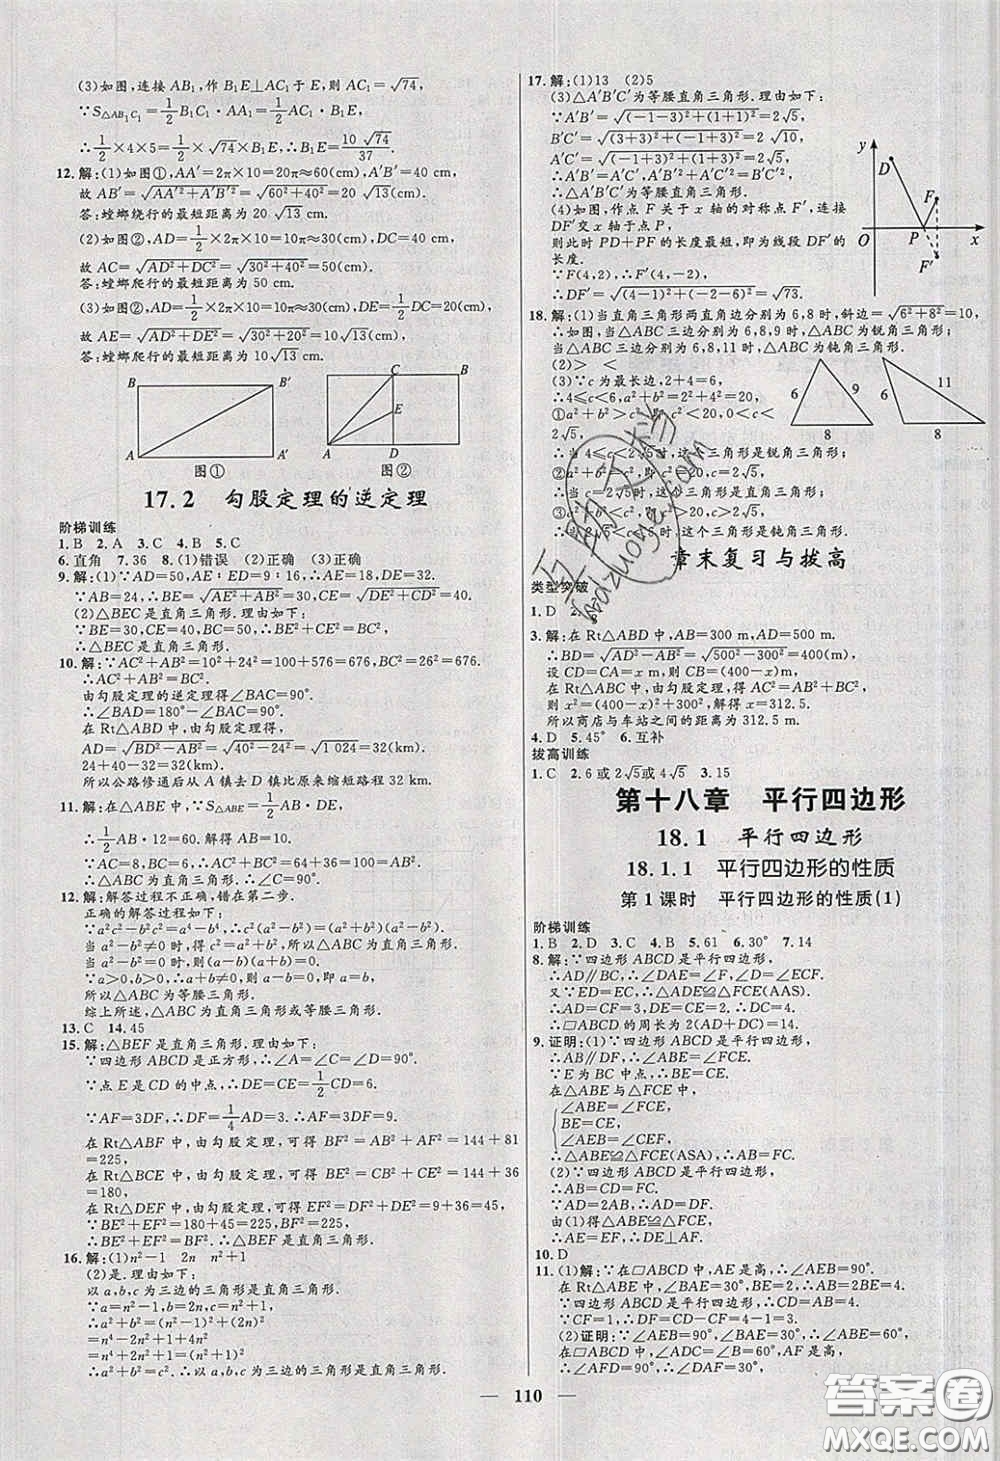 (3)如图,连接AB₁,作B₁E⊥AC₁于E,则AC₁=√74,
∵S△AB₁C₁=1/2 B₁C₁·AA₁=1/2 AC₁·B₁E,
∴1/2×4×5=1/2×√74×B₁E,∴B₁E=10√74/37.
12.解:(1)如图①,AA′=2π×10=20π≈60(cm),A′B′=40 cm,
故AB′=√AA′²+A′B′²=√60²+40²=20√13(cm).
答:螳螂绕行的最短距离为20√13 cm.
(2)如图②,AD=1/2×2π×10=10π≈30(cm),DC=40 cm,
故AC=√AD²+DC²=√30²+40²=50(cm).
答:螳螂爬行的最短距离为50 cm.
(3)如图②,AD=1/2×2π×10=10π≈30(cm),DE=1/2DC=20(cm),
故AE=√AD²+DE²=√30²+20²=10√13(cm).
答:螳螂爬行的最短距离为10√13 cm.
B B′ A A′
图①
B C E A D
图②
17.2 勾股定理的逆定理
阶梯训练
1.B 2.A 3.C 4.B 5.C
6.直角 7.36 8.(1)错误 (2)正确 (3)正确
9.解:(1)∵AD=50,AE∶ED=9∶16,∴AE=18,DE=32.
∵AB=24,∴BE=√AE²+AB²=30,CE=√DE²+CD²=40.
(2)△BEC是直角三角形.理由如下:
∵BE=30,CE=40,BC=50,∴BE²+CE²=BC²,
∴△BEC是直角三角形.
10.解:∵AC²+AB²=10²+24²=100+576=676,BC²=26²=676.
∴AC²+AB²=BC².
由勾股定理的逆定理得∠BAC=90°.
∴∠BAD=180°-∠BAC=90°.
在Rt△ABD中,由勾股定理得,
AD=√BD²-AB²=√40²-24²=√1 024=32(km).
所以公路修通后从A镇去D镇比原来缩短路程32(km).
11.解:在△ABE中,∵S△ABE=1/2AB·DE,
∴1/2AB·12=60.解得AB=10.
∵AC=8,BC=6,∴AC²+BC²=8²+6²=100.
∵AB²=10²=100,∴AC²+BC²=AB².∴∠C=90°.
12.解:解答过程不正确,错在第二步.
正确的解答过程如下:
∵a²c²-b²c²=a⁴-b⁴,∴c²(a²-b²)=(a²+b²)(a²-b²).
当a²-b²≠0时,c²=a²+b²,所以△ABC是直角三角形.
当a²-b²=0时,所以(a-b)(a+b)=0.
∵a>0,b>0,∴a+b≠0,所以a-b=0,即a=b.
所以△ABC为等腰三角形.
综上所述,△ABC为直角三角形或等腰三角形.
13.C 14.45
15.解:△BEF是直角三角形.理由如下:
∵四边形ABCD是正方形,∴∠A=∠C=∠D=90°.
∵点E是CD的中点,∴DE=CE=1/2CD=6.
∵AF=3DF,∴DF=1/4AD=3.∴AF=3DF=9.
在Rt△ABF中,由勾股定理,可得BF²=AB²+AF²=144+81
=225,
在Rt△BCE中,由勾股定理,可得BE²=CB²+CE²=144+36
=180,
在Rt△DEF中,由勾股定理,可得EF²=DF²+DE²=9+36=45,
∵BE²+EF²=180+45=225,BF²=225,∴BE²+EF²=BF².
∴△BEF是直角三角形.
16.解:(1)n²-1 2n n²+1
(2)是.理由如下:
以a,b,c为三边的三角形是直角三角形.
∵a=n²-1,b=2n,c=n²+1,
∴a²+b²=(n²-1)²+(2n)²
=n⁴-2n²+1+4n²
=n⁴+2n²+1=(n²+1)²=c².
∴a²+b²=c².∴以a,b,c为三边的三角形是直角三角形.
17.解:(1)13 (2)5
(3)△A′B′C′为等腰直角三角形.理由如下:
∵A′B′=√(-1-3)²+(1+1)²=2√5,
B′C′=√(3+3)²+(-1-1)²=2√10,
A′C′=√(-1+3)²+(1+3)²=2√5,
∴A′B′=A′C′,A′B′²+A′C′²=B′C′².
∴△A′B′C′为等腰直角三角形.
(4)如图,作点F关于x轴的对称点F′,连接
DF′交x轴于点P,
则此时PD+PF的长度最短,即为线段DF′的
长度.
∵F(4,2),∴F′(4,-2).
∴DF′=√(1-4)²+(6+2)²=√73.
y D F O P x F′
18.解:(1)当直角三角形两直角边分别为6,8时,斜边=√6²+8²=10,
∴如图,当△ABC三边分别为6,8,9时,△ABC为锐角三角形;
当△ABC三边分别为6,8,11时,△ABC为钝角三角形.
(2)> <
(3)∵c为最长边,2+4=6,
∴4≤c<6,a²+b²=2²+4²=20.
①a²+b²>c²,即c²<20,0<c<
2√5,
∴当4≤c<2√5时,这个三角形是锐角三角形;
②a²+b²=c²,即c²=20,c=2√5,
∴当c=2√5时,这个三角形是直角三角形;
③a²+b²<c²,即c²>20,c>2√5,
∴当2√5<c<6时,这个三角形是钝角三角形.
6 9 8
6 11 8
章末复习与拔高
类型突破
1.D
3.解:在Rt△ABD中,AB=300 m,AD=500 m.
∴BD=√AD²-AB²=√500²-300²=400(m).
设CD=CA=x(m),则BC=CB=(400-x)m.
在Rt△ABC中,根据勾股定理,得AC²=AB²+BC²,
则x²=(400-x)²+300²,解得x=312.5.
所以商店与车站之间的距离为312.5 m.
4.D 5.45° 6.互补
拔高训练
1.C 2.6或2√5或4√5 3.15
第十八章 平行四边形
18.1 平行四边形
18.1.1 平行四边形的性质
第1课时 平行四边形的性质(1)
阶梯训练
1.B 2.D 3.C 4.B 5.61 6.30° 7.14
8.解:∵四边形ABCD是平行四边形,
∴AD∥BC,∴∠DAE=∠F,∠D=∠ECF.
又∵ED=CE,∴△ADE≌△FCE(AAS).
∴□ABCD的周长为2(AD+DC)=14.
9.证明:(1)∵四边形ABCD是平行四边形,
∴AB∥DF,∴∠ABE=∠FCE.
∵E为BC中点,∴BE=CE.
在△ABE与△FCE中,
∠ABE=∠FCE,
BE=CE,
∠AEB=∠FEC,
∴△ABE≌△FCE(ASA),∴AB=FC.
(2)∵四边形ABCD是平行四边形,
∴AB=CD=FC.
∵AD=2AB,∴AD=DF.
由(1)得△ABE≌△FCE,
∴AE=EF,∴DE⊥AF.
10.D
11.(1)解:∵在□ABCD中,AE是高,∴∠AEB=90°.
在Rt△ABE中,∠BAE=30°,BE=2,∴AB=2BE=4.
∵四边形ABCD是平行四边形,∴CD=AB=4.
∵CF=1,∴DF=CD-CF=4-1=3.
(2)证明:∵∠AEB=90°,∠BAE=30°,∴∠B=60°,
在□ABCD中,∠D=∠B=60°,
∴△AFD
110
答案圈
MXQE.COM